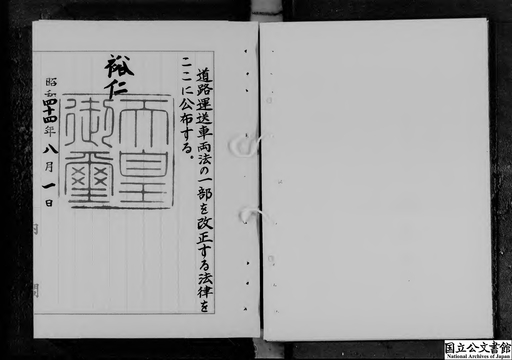 道路運送車両法の一部を改正する法律を
ここに公布する。
裕仁
天皇
御璽
昭和四十四年八月一日
国立公文書館
National Archives of Japan